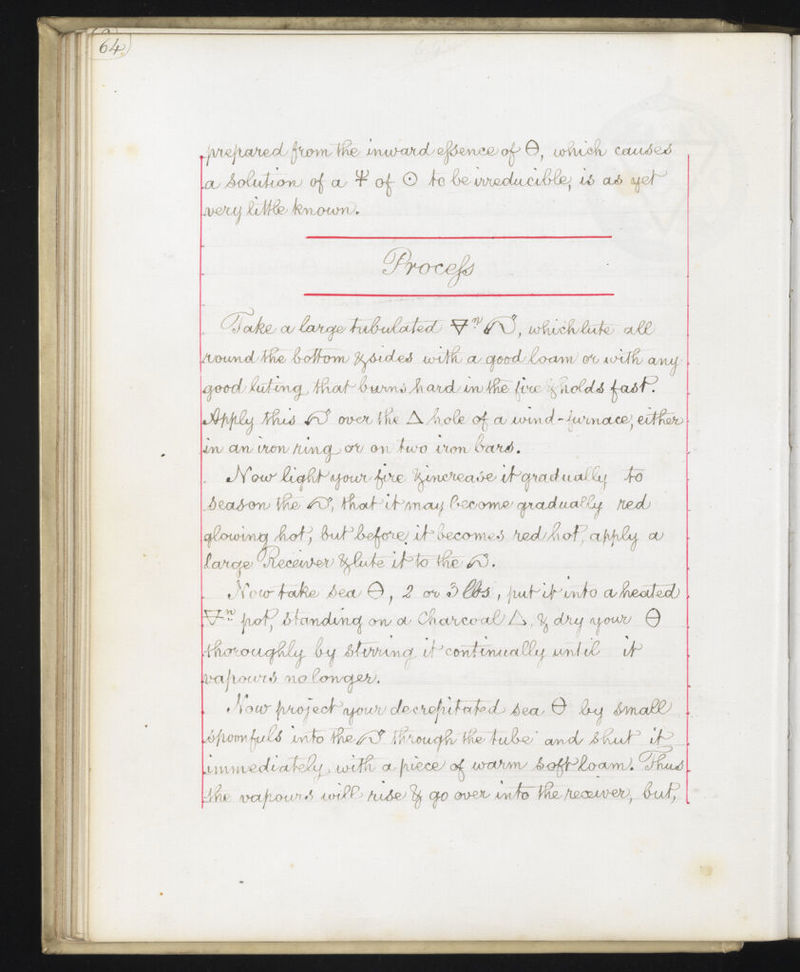 64
prepared from the inward essence of Θ, which causes
a solution of a 🜍 of ☉ to be irreducible, is as yet
very little known.
Process
Take a large tubulated 🜃n, which lute all
round the bottom & sides with a good loam or with any
good luting, that burns hard in the fire & holds fast.
Apply this over the △ hole of a wind-furnace, either
in an iron ring or on two iron bars.
Now light your fire & increase it gradually to
season the, that it may become gradually red
glowing hot, but before it becomes red hot, apply a
large Receiver & lute it to the.
Now take sea Θ, 2 or 3 lbs, put it into a heated
🜃n pot, standing on a Charcoal △, & dry your Θ
thoroughly by stirring it continually until it
vapours no longer.
Now project your decrepitated sea Θ by small
spoonfuls into the through the tube and shut it
immediately with a piece of warm soft loam. Thus
the vapours will rise & go over into the receiver, but,